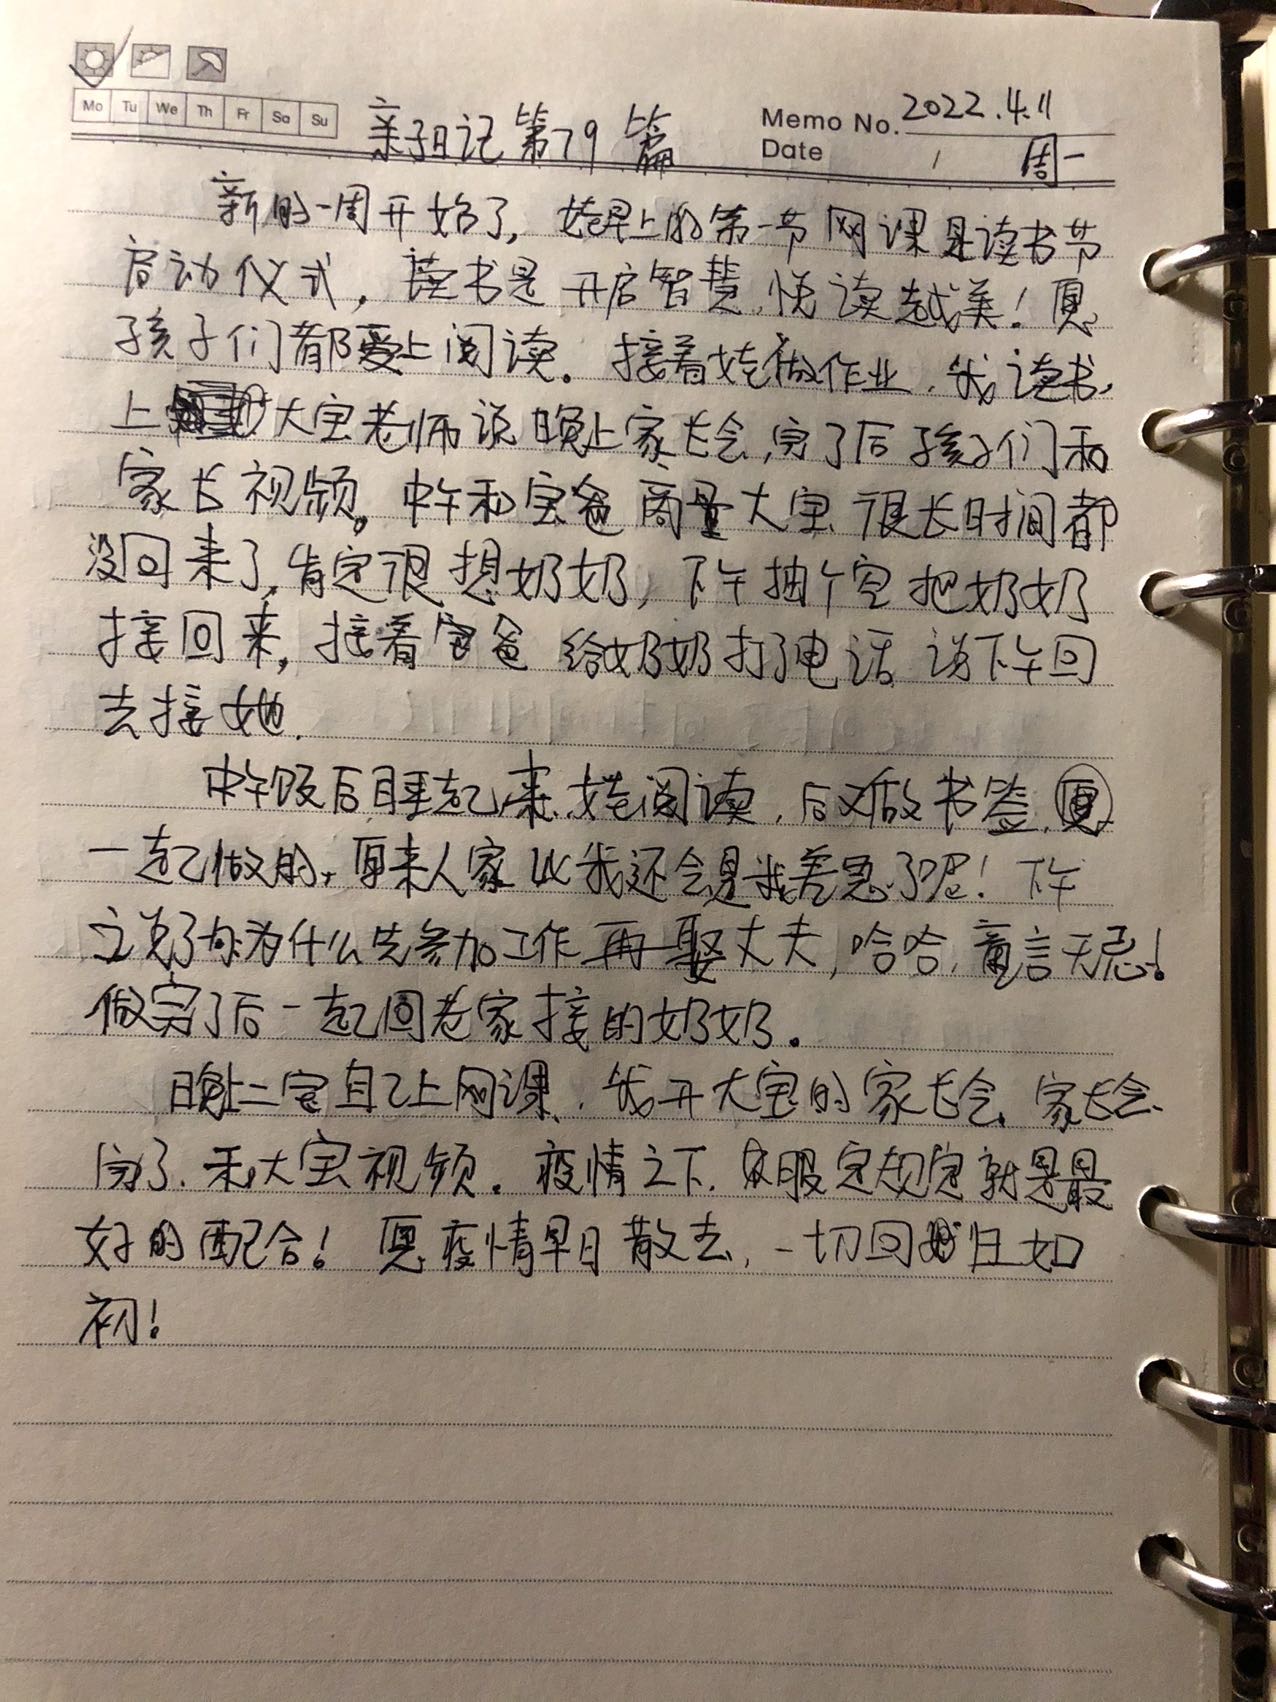 Mo Tu We Th Fr Sa Su
亲子日记第79篇
Memo No. 2022.4.11
Date / 周一
新的一周开始了,娃早上的第一节网课是读书节
启动仪式,读书是开启智慧,悦读越美!愿
孩子们都爱上阅读。接着娃做作业,我读书,
上大宝老师说晚上家长会,完了后孩子们和
家长视频。中午和宝爸商量大宝很长时间都
没回来了,肯定很想奶奶,下午抽个空把奶奶
接回来,接着宝爸给奶奶打了电话说下午回
去接她.
中午饭后睡起来,娃阅读,后又做书签,
一起做的,原来人家比我还会是我差忽了呢!下午
又说了句为什么先参加工作再娶丈夫,哈哈,童言无忌!
做完了后一起回老家接的奶奶。
晚上二宝自己上网课,我开大宝的家长会,家长会
完了,和大宝视频。疫情之下,服定规定就是最
好的配合!愿疫情早日散去,一切回归如
初!